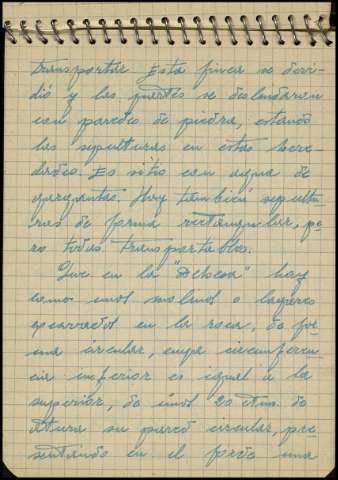 transportar. Esta finca se divi-
dió y las partes se deslindaron
con paredes de piedra, estando
las sepulturas en estas here-
dades. Es sitio con agua de
gargantas. Hay también sepultu-
ras de forma rectangular, pe-
ro todas transportables.
Que en la "Dehesa" hay
como unos molinos o lagares
excavados en la roca, de for-
ma circular, cuya circunferen-
cia inferior es igual a la
superior, de unos 20 ctm. de
altura su pared circular, pre-
sentando en el fondo una